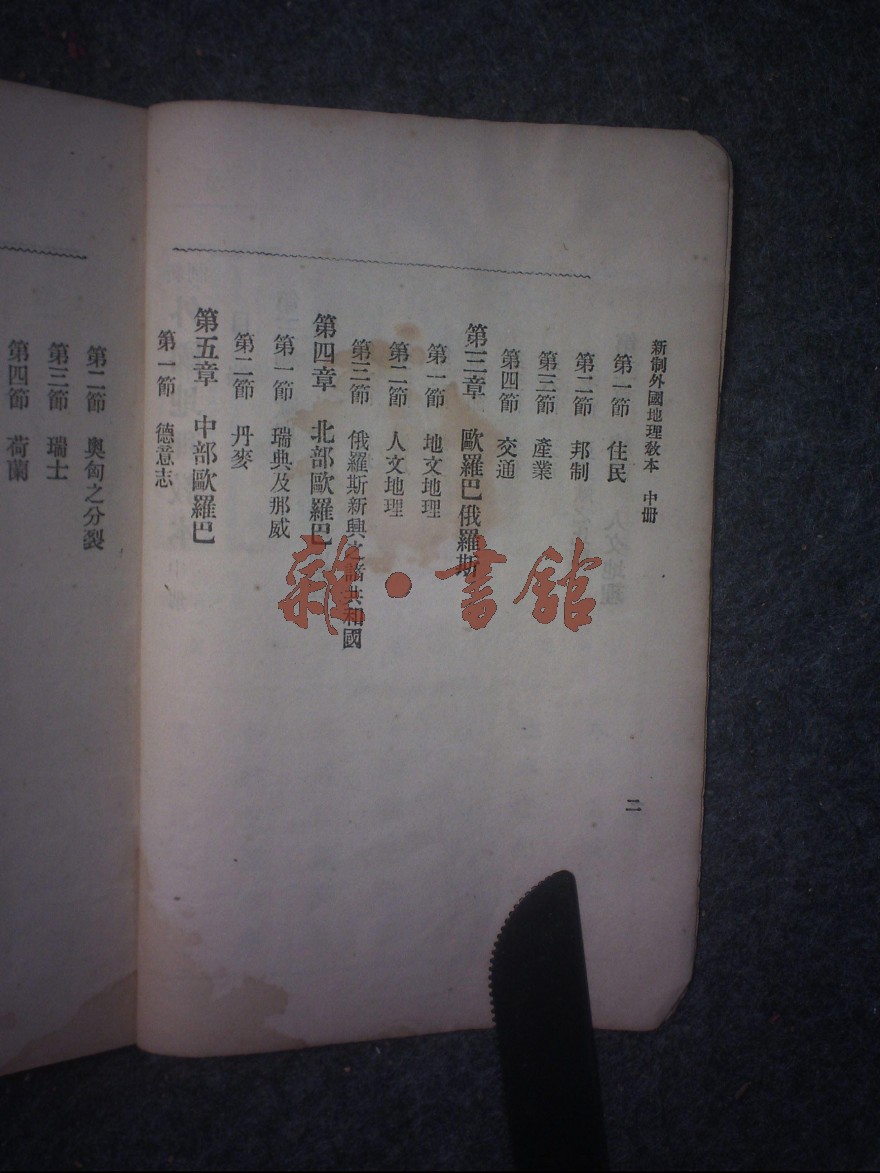 新制外國地理教本　中册
第一節　住民
第二節　邦制
第三節　產業
第四節　交通
第三章　歐羅巴俄羅斯
第一節　地文地理
第二節　人文地理
第三節　俄羅斯新興之諸共和國
第四章　北部歐羅巴
第一節　瑞典及那威
第二節　丹麥
第五章　中部歐羅巴
第一節　德意志
二
第二節　奧匈之分裂
第三節　瑞士
第四節　荷蘭
雜·書館